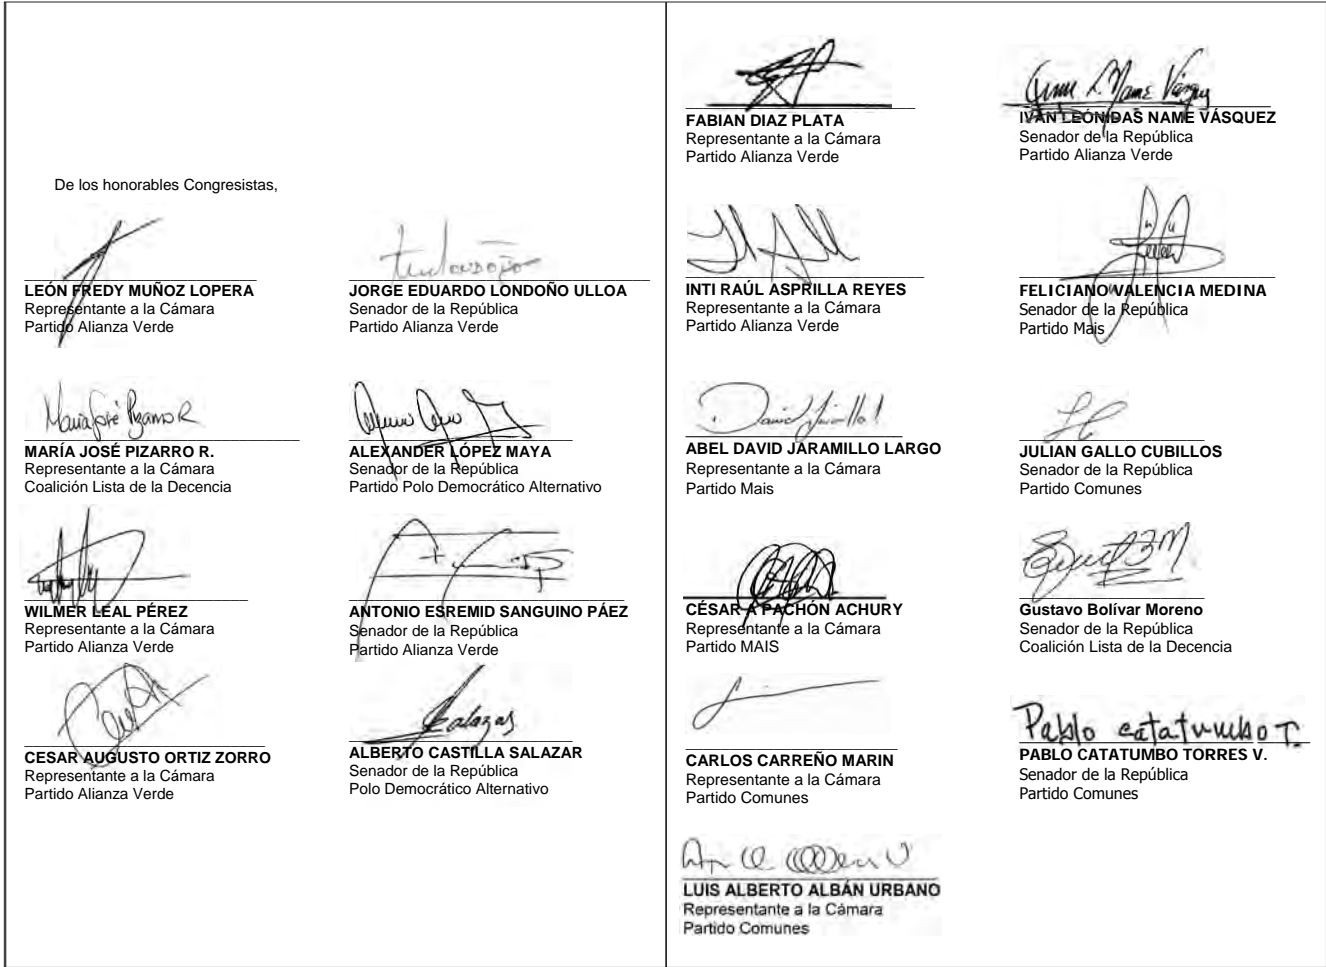 De los honorables Congresistas,
LEÓN FREDY MUÑOZ LOPERA
Representante a la Cámara
Partido Alianza Verde
JORGE EDUARDO LONDOÑO ULLOA
Senador de la República
Partido Alianza Verde
María José Pizarro R
MARÍA JOSÉ PIZARRO R.
Representante a la Cámara
Coalición Lista de la Decencia
ALEXANDER LÓPEZ MAYA
Senador de la República
Partido Polo Democrático Alternativo
WILMER LEAL PÉREZ
Representante a la Cámara
Partido Alianza Verde
ANTONIO ESREMID SANGUINO PÁEZ
Senador de la República
Partido Alianza Verde
CESAR AUGUSTO ORTIZ ZORRO
Representante a la Cámara
Partido Alianza Verde
ALBERTO CASTILLA SALAZAR
Senador de la República
Polo Democrático Alternativo
FABIAN DIAZ PLATA
Representante a la Cámara
Partido Alianza Verde
IVÁN LEÓNIDAS NAME VÁSQUEZ
Senador de la República
Partido Alianza Verde
INTI RAÚL ASPRILLA REYES
Representante a la Cámara
Partido Alianza Verde
FELICIANO VALENCIA MEDINA
Senador de la República
Partido Mais
ABEL DAVID JARAMILLO LARGO
Representante a la Cámara
Partido Mais
JULIAN GALLO CUBILLOS
Senador de la República
Partido Comunes
CÉSAR A PACHÓN ACHURY
Representante a la Cámara
Partido MAIS
Gustavo Bolívar Moreno
Senador de la República
Coalición Lista de la Decencia
CARLOS CARREÑO MARIN
Representante a la Cámara
Partido Comunes
Pablo catatumbo T.
PABLO CATATUMBO TORRES V.
Senador de la República
Partido Comunes
LUIS ALBERTO ALBÁN URBANO
Representante a la Cámara
Partido Comunes